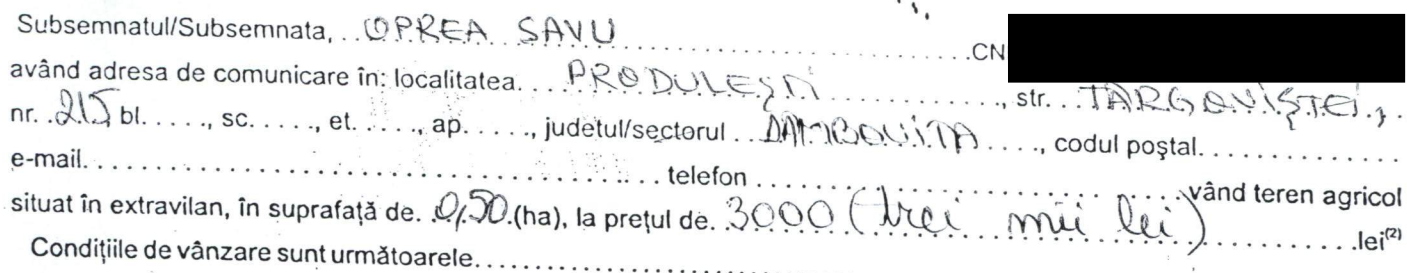 Subsemnatul/Subsemnata, . . OPREA SAVU . . . . . . . . . . . . . . . . . . . . . . . . . . . . .CN
având adresa de comunicare în: localitatea. . . . PRODULEŞTI . . . . . . . . . . . . . ., str. . . TARGOVIŞTEI , .
nr. .215 bl. . . . ., sc. . . . ., et. . . . . ., ap. . . . ., judetul/sectorul . . DAMBOVITA . . . ., codul poştal. . . . . . . . . . . . . . .
e-mail. . . . . . . . . . . . . . . . . . . . . . . . . . . . . . . . . . . . . . . . . telefon . . . . . . . . . . . . . . . . . . . . . . . . . . . . . .vând teren agricol
situat în extravilan, în suprafață de. .0,50.(ha), la prețul de. 3000 (trei mii lei) . . . . . . . . . . .lei(2)
Condițiile de vânzare sunt următoarele. . . . . . . . . . . . . . . . . . . . . . . . . . . . .